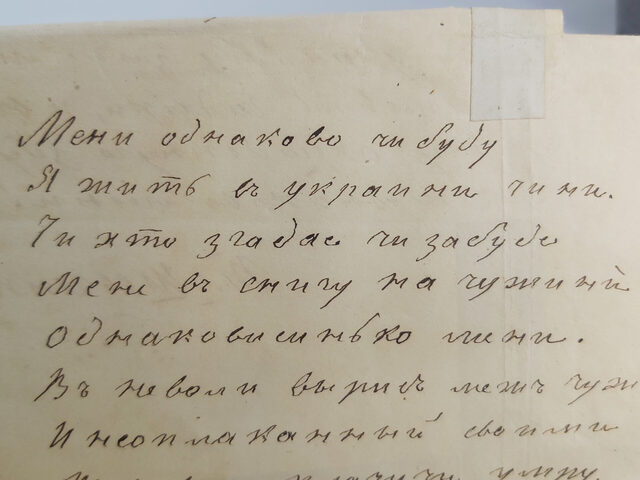 Мени однаково чи буду
Я жить в украини чи ни.
Чи хто згадає чи забуде
Мене въ снигу на чужини
Однаковисинько мени.
Въ неволи вырисъ межъ чуж
И неоплаканный своими
умру